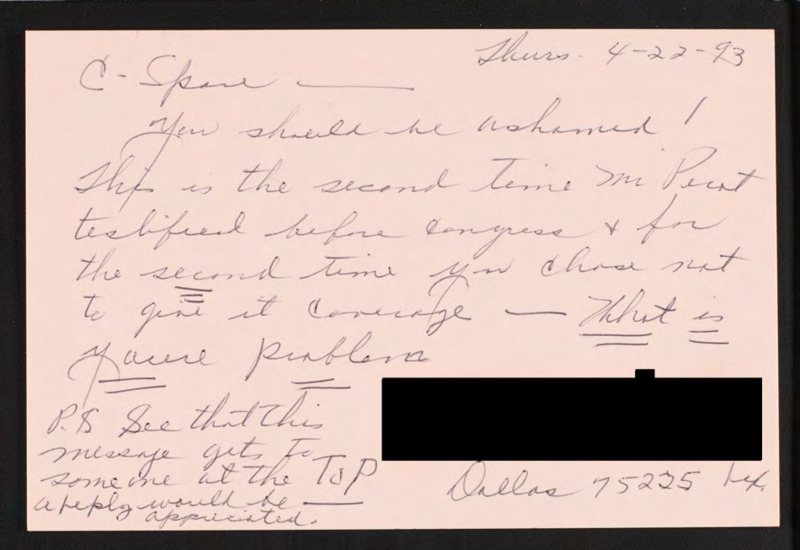 Thurs. 4-22-93
C-Span —
You should be ashamed!
This is the second time Mr Perot
testified before congress & for
the second time you chose not
to give it coverage — What is
youre problem
P.S See that this
message gets to
someone at the TOP
a reply would be —
appriciated.
Dallas 75225 Tex.